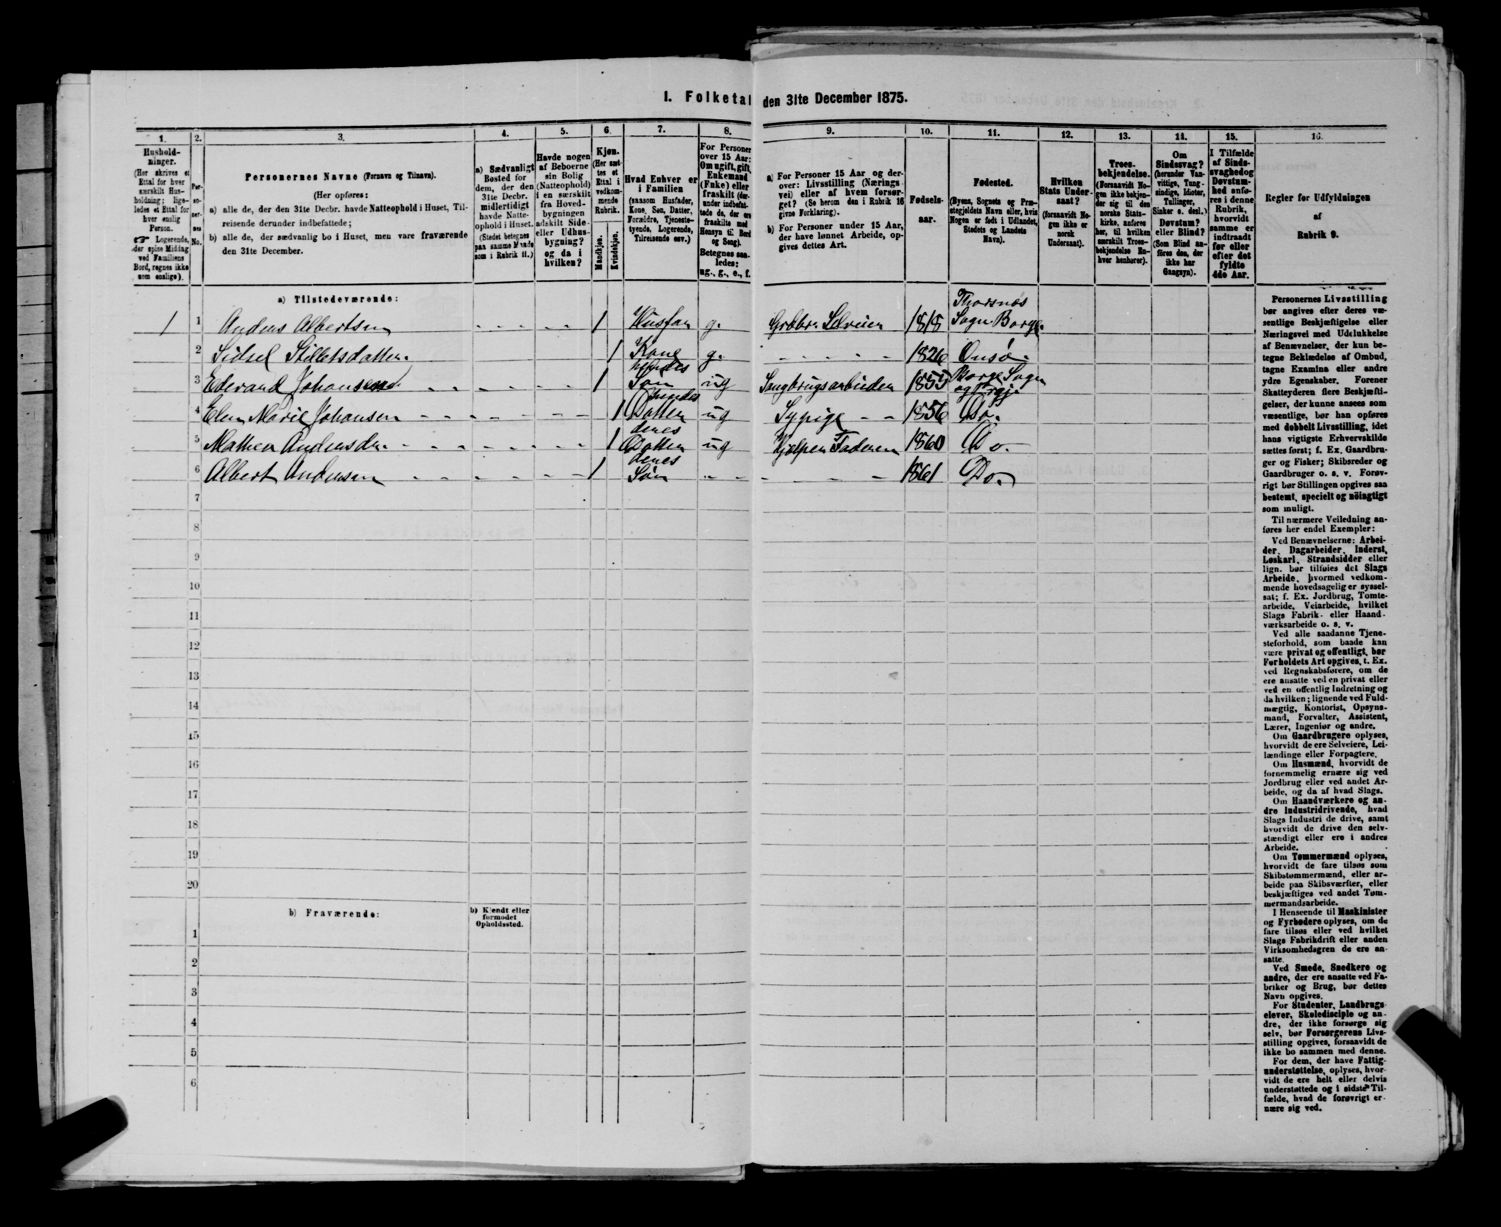 I. Folketal den 31te December 1875.
1. 2. 3. 4. 5. 6. 7. 8. 9. 10. 11. 12. 13. 14. 15. 16.
Hushold-
ninger.
(Her skrives et
Ettal for hver
særskilt Hus-
holdning; lige-
ledes et Ettal for
hver enslig
Person.
☞ Logerende,
der spise Middag
ved Familiens
Bord, regnes ikke
som enslige).
Personernes Navne (Fornavn og Tilnavn).
(Her opføres:
a) alle de, der den 31te Decbr. havde Natteophold i Huset, Til-
reisende derunder indbefattede;
b) alle de, der sædvanlig bo i Huset, men vare fraværende
den 31te December.
a) Sædvanligt
Bosted for
dem, der den
31te Decbr.
midlertidigt
havde Natte-
ophold i Huset.
(Stedet betegnes
paa samme Maade
som i Rubrik 11.)
Havde nogen
af Beboerne
sin Bolig
(Natteophold)
i en særskilt
fra Hoved-
bygningen
adskilt Side-
eller Udhus-
bygning?
og da i
hvilken?
Kjøn.
(Her sæt-
tes et
Ettal i
vedkom-
mende
Rubrik.
Mandkjøn.
Kvindekjøn.
Hvad Enhver er
i Familien
(saasom Husfader,
Kone, Søn, Datter,
Forældre, Tjeneste-
tyende, Logerende,
Tilreisende osv.)
For Personer
over 15 Aar:
Om ugift, gift,
Enkemand
(Enke) eller
fraskilt (der-
under indbefat-
tede de, der ere
fraskilte med
Hensyn til Bord
og Seng).
Betegnes saa-
ledes:
ug., g., e., f.
a) For Personer 15 Aar og der-
over: Livsstilling (Nærings-
vei) eller af hvem forsør-
get? (Se herom den i Rubrik 16
givne Forklaring).
b) For Personer under 15 Aar,
der have lønnet Arbeide, op-
gives dettes Art.
Fødsels-
aar.
Fødested.
(Byens, Sognets og Præ-
stegjeldets Navn eller, hvis
Nogen er født i Udlandet,
Stedets og Landets
Navn).
Hvilken
Stats Under-
saat?
(forsaavidt No-
gen ikke er
norsk
Undersaat).
Troes-
bekjendelse.
(Forsaavidt No-
gen ikke bekjen-
der sig til den
norske Stats-
kirke, anføres
her, til hvilken
særskilt Troes-
bekjendelse En-
hver henhører).
Om
Sindssvag?
(herunder Van-
vittige, Tung-
sindige, Idioter,
Tullinger,
Sinker o. desl.)
Døvstum?
eller Blind?
(Som Blind an-
føres den, der
ikke har
Gangsyn).
I Tilfælde
af Sinds-
svaghed og
Døvstum-
hed anfø-
res i denne
Rubrik,
hvorvidt
samme er
indtraadt
før eller
efter det
fyldte
4de Aar.
Regler for Udfyldningen
af
Rubrik 9.
a) Tilstedeværende:
1 1 Anders Albertsen 1 Husfar g. Gaardbr. Selveier 1818 Thorsnæs Sogn Borge.
2 Sidsel 1 Kone g. 1826 Onsø.
3 Edevard Johansen. 1 hendes Søn ug Saugbrugsarbeider 1855 Borge Sogn
4 Elen Marie Johansen 1 hendes Datter ug Sypige 1856 Do.
5 Mathea Andersdtr. 1 deres Datter ug Hjelper Faderen 1860 Do.
6 Albert Andersen 1 deres Søn 1861 Do.
7
8
9
10
11
12
13
14
15
16
17
18
19
20
b) Fraværende:
b) Kjendt eller
formodet
Opholdssted.
1
2
3
4
5
6
Personernes Livsstilling
bør angives efter deres væ-
sentlige Beskjæftigelse eller
Næringsvei med Udelukkelse
af Benævnelser, der kun be-
tegne Beklædelse af Ombud,
tagne Examina eller andre
ydre Egenskaber. Forener
Skatteyderen flere Beskjæfti-
gelser, der kunne ansees som
væsentlige, bør han opføres
med dobbelt Livsstilling, idet
hans vigtigste Erhvervskilde
sættes først; f. Ex. Gaardbru-
ger og Fisker; Skibsreder og
Gaardbruger o. s. v. Forøv-
rigt bør Stillingen opgives saa
bestemt, specielt og nöiagtigt
som muligt.
Til nærmere Veiledning an-
føres her endel Exempler:
Ved Benævnelserne: Arbei-
der, Dagarbeider, Inderst,
Løskarl, Strandsidder eller
lign. bør tilføies det Slags
Arbeide, hvormed vedkom-
mende hovedsagelig er syssel-
sat; f. Ex. Jordbrug, Tomte-
arbeide, Veiarbeide, hvilket
Slags Fabrik- eller Haand-
værksarbeide o. s. v.
Ved alle saadanne Tjene-
steforhold, som baade kan
være privat og offentligt, bør
Forholdets Art opgives, t. Ex.
ved Regnskabsførere, om de
ere ansatte ved en privat eller
ved en offentlig Indretning og
da hvilken; lignende ved Fuld-
mægtig, Kontorist, Opsyns-
mand, Forvalter, Assistent,
Lærer, Ingeniør og andre.
Om Gaardbrugere oplyses,
hvorvidt de ere Selveiere, Lei-
lændinge eller Forpagtere.
Om Husmænd, hvorvidt de
fornemmelig ernære sig ved
Jordbrug eller ved andet Ar-
beide, og da af hvad Slags.
Om Haandværkere og an-
dre Industridrivende, hvad
Slags Industri de drive, samt
hvorvidt de drive den selv-
stændigt eller ere i andres
Arbeide.
Om Tømmermænd oplyses,
hvorvidt de fare tilsøs som
Skibstømmermænd, eller ar-
beide paa Skibsværfter, eller
beskjæftiges ved andet Tøm-
mermandsarbeide.
I Henseende til Maskinister
og Fyrbødere oplyses, om de
fare tilsøs eller ved hvilket
Slags Fabrikdrift eller anden
Virksomhedsgren de ere an-
satte.
Ved Smede, Snedkere og
andre, der ere ansatte ved Fa-
briker og Brug, bør dettes
Navn opgives.
For Studenter, Landbrugs-
elever, Skoledisciple og an-
dre, der ikke forsørge sig
selv, bør Forsørgerens Livs-
stilling opgives, forsaavidt de
ikke bo sammen med denne.
For dem, der have Fattig-
understøttelse, oplyses, hvor-
vidt de ere helt eller delvis
understøttede og i sidste Til-
fælde, hvad de forøvrigt er-
nære sig ved.